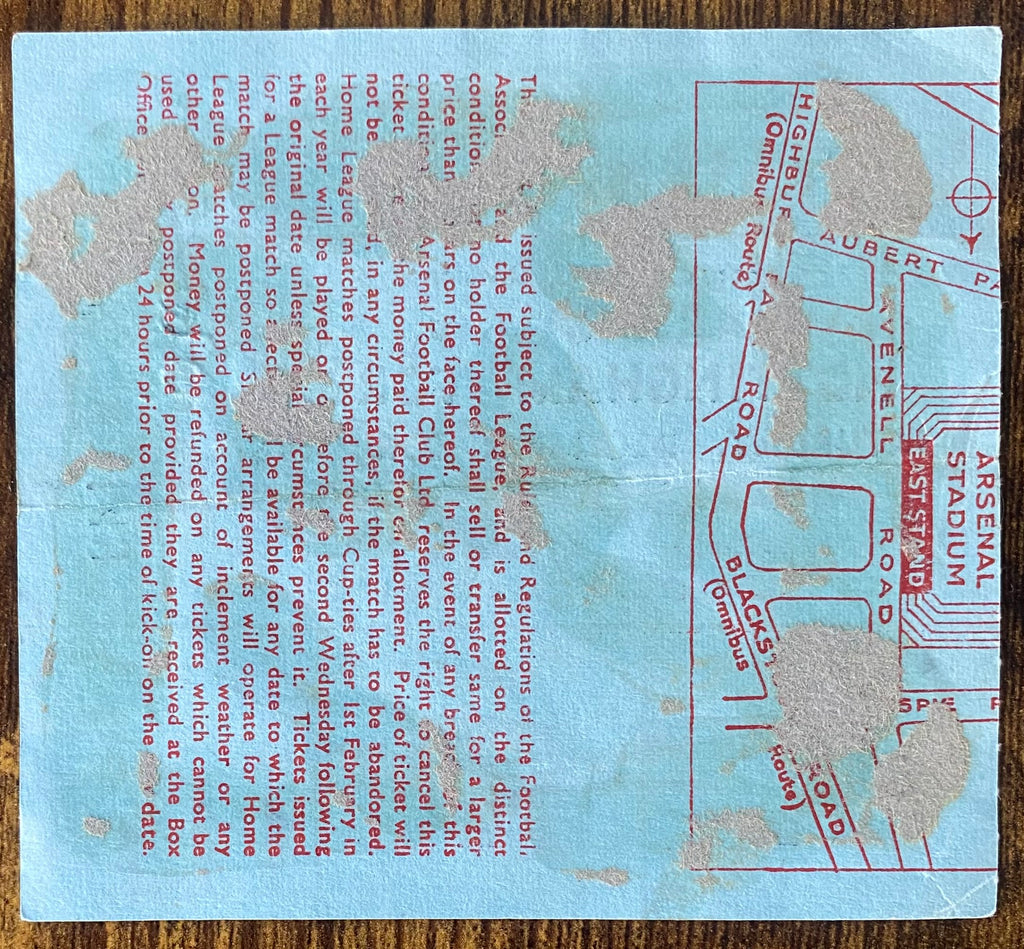 ARSENAL
STADIUM
EAST STAND
AUBERT
AVENELL ROAD
HIGHBUR
ROAD
(Omnibus Route)
BLACKS
ROAD
(Omnibus Route)
issued subject to the and Regulations of the Football
and the Football League, and is allotted on the distinct
condition no holder thereof shall sell or transfer same for a larger
price than on the face hereof. In the event of any breach of this
condition Arsenal Football Club Ltd. reserves the right to cancel this
ticket the money paid therefor on allotment. Price of ticket will
not be in any circumstances, if the match has to be abandoned.
Home League matches postponed through Cup-ties after 1st February in
each year will be played on or before the second Wednesday following
the original date unless special circumstances prevent it. Tickets issued
for a League match so affected will be available for any date to which the
match may be postponed Similar arrangements will operate for Home
League matches postponed on account of inclement weather or any
other Money will be refunded on any tickets which cannot be
used postponed date provided they are received at the Box
Office 24 hours prior to the time of kick-off on the date.